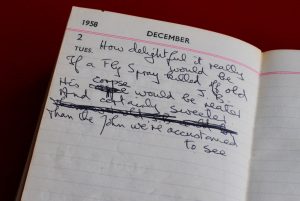 1958
DECEMBER
2
TUES. How delightful it really
would be
If a Fly Spray killed J. R.
if old
His corpse would be neater
And certainly sweeter
Than the John we're accustomed
to see